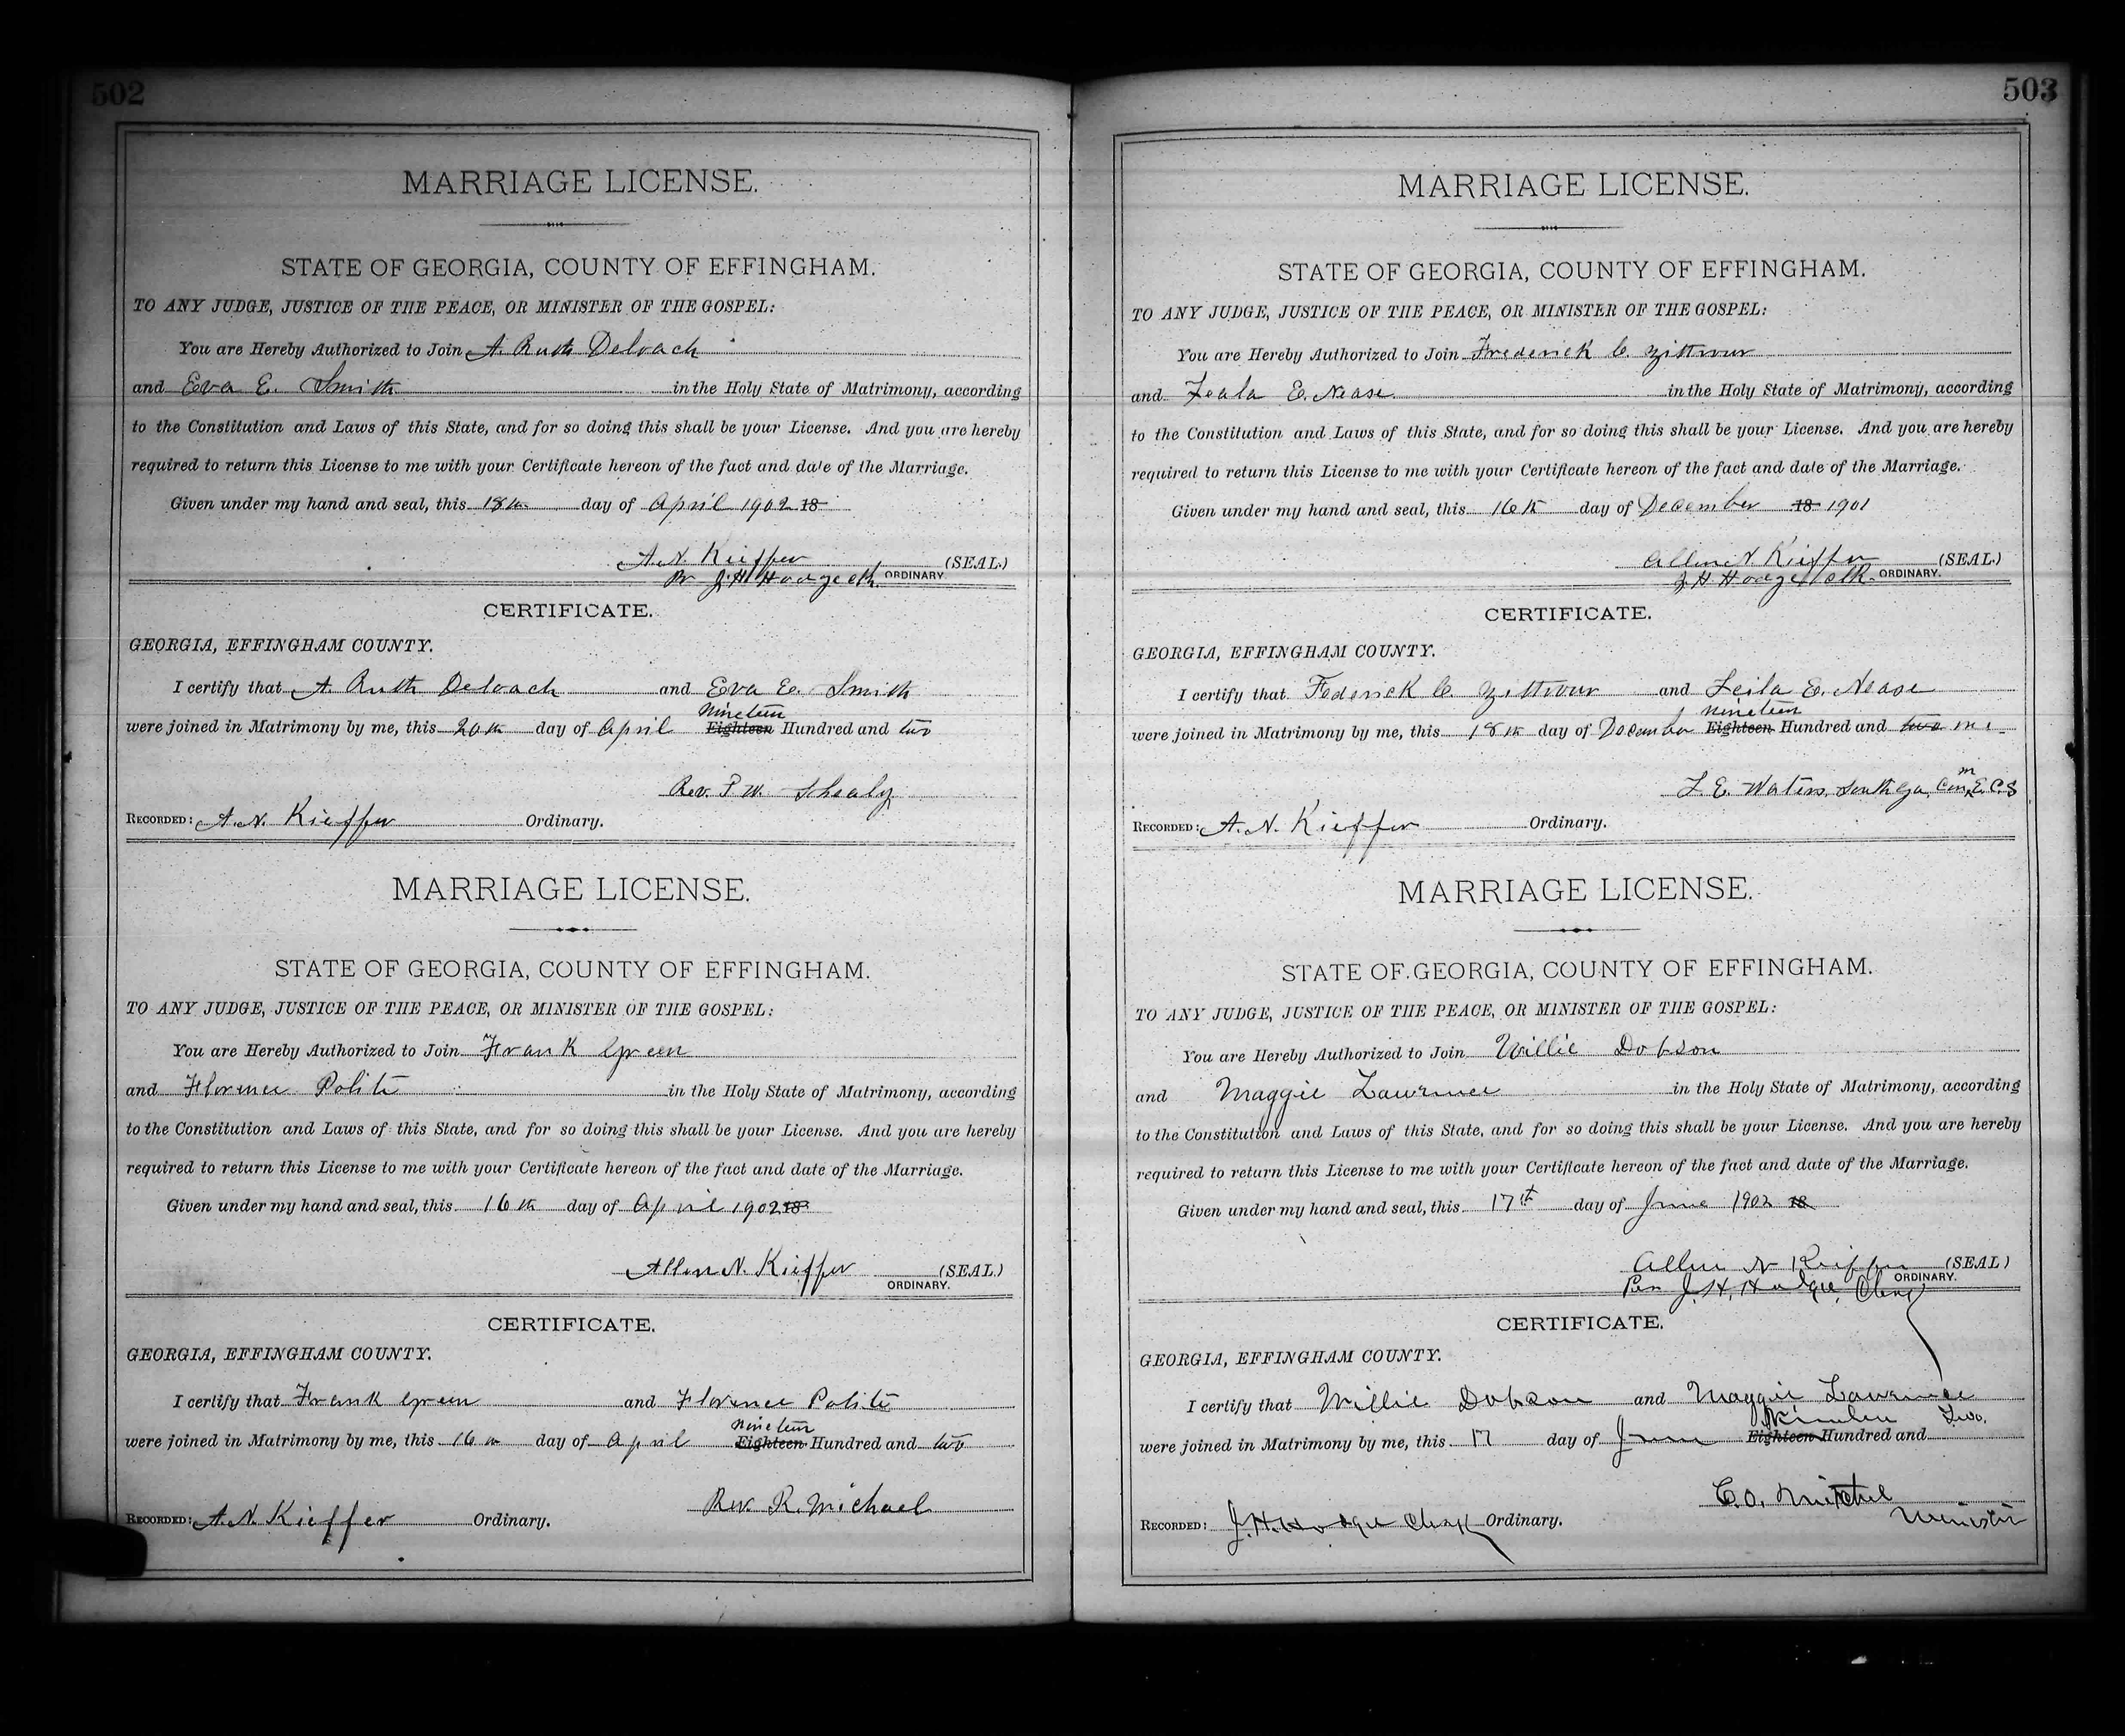 502
MARRIAGE LICENSE.
STATE OF GEORGIA, COUNTY OF EFFINGHAM.
TO ANY JUDGE, JUSTICE OF THE PEACE, OR MINISTER OF THE GOSPEL:
You are Hereby Authorized to Join A. Ruth Deloach
and Eva E. Smith in the Holy State of Matrimony, according
to the Constitution and Laws of this State, and for so doing this shall be your License. And you are hereby
required to return this License to me with your Certificate hereon of the fact and date of the Marriage.
Given under my hand and seal, this 18th day of April 1902 18
A. N. Kieffer (SEAL)
Pr J. H. Hodge clk. ORDINARY.
CERTIFICATE.
GEORGIA, EFFINGHAM COUNTY.
I certify that A. Ruth Deloach and Eva E. Smith
Nineteen
were joined in Matrimony by me, this 20th day of April Eighteen Hundred and two
Rev. P. W. Shealy
RECORDED: A. N. Kieffer Ordinary.
MARRIAGE LICENSE.
STATE OF GEORGIA, COUNTY OF EFFINGHAM.
TO ANY JUDGE, JUSTICE OF THE PEACE, OR MINISTER OF THE GOSPEL:
You are Hereby Authorized to Join Frank Green
and Florence Polite in the Holy State of Matrimony, according
to the Constitution and Laws of this State, and for so doing this shall be your License. And you are hereby
required to return this License to me with your Certificate hereon of the fact and date of the Marriage.
Given under my hand and seal, this 16th day of April 1902 18
Allen N. Kieffer (SEAL)
ORDINARY.
CERTIFICATE.
GEORGIA, EFFINGHAM COUNTY.
I certify that Frank Green and Florence Polite
Nineteen
were joined in Matrimony by me, this 16th day of April Eighteen Hundred and two
Rev. R. Michael
RECORDED: A. N. Kieffer Ordinary.
503
MARRIAGE LICENSE.
STATE OF GEORGIA, COUNTY OF EFFINGHAM.
TO ANY JUDGE, JUSTICE OF THE PEACE, OR MINISTER OF THE GOSPEL:
You are Hereby Authorized to Join Frederick C. Zittrour
and Leala E. Nease in the Holy State of Matrimony, according
to the Constitution and Laws of this State, and for so doing this shall be your License. And you are hereby
required to return this License to me with your Certificate hereon of the fact and date of the Marriage.
Given under my hand and seal, this 16th day of December 18 1901
Allen N. Kieffer (SEAL)
J H Hodge clk. ORDINARY.
CERTIFICATE.
GEORGIA, EFFINGHAM COUNTY.
I certify that Federick C. Zittrour and Leila E. Nease
Nineteen
were joined in Matrimony by me, this 18th day of December Eighteen Hundred and two one
L. E. Waters, South Ga. Con, M. E. C. S
RECORDED: A. N. Kieffer Ordinary.
MARRIAGE LICENSE.
STATE OF GEORGIA, COUNTY OF EFFINGHAM.
TO ANY JUDGE, JUSTICE OF THE PEACE, OR MINISTER OF THE GOSPEL:
You are Hereby Authorized to Join Willie Dobson
and Maggie Lawrence in the Holy State of Matrimony, according
to the Constitution and Laws of this State, and for so doing this shall be your License. And you are hereby
required to return this License to me with your Certificate hereon of the fact and date of the Marriage.
Given under my hand and seal, this 17th day of June 1902 18
Allen N Kieffer (SEAL)
Per J. H. Hodge, Clerk ORDINARY.
CERTIFICATE.
GEORGIA, EFFINGHAM COUNTY.
I certify that Willie Dobson and Maggie Lawrence
Nineteen Two.
were joined in Matrimony by me, this 17 day of June Eighteen Hundred and
C. O. Mitchel
Minister
RECORDED: J. H. Hodge Clerk Ordinary.